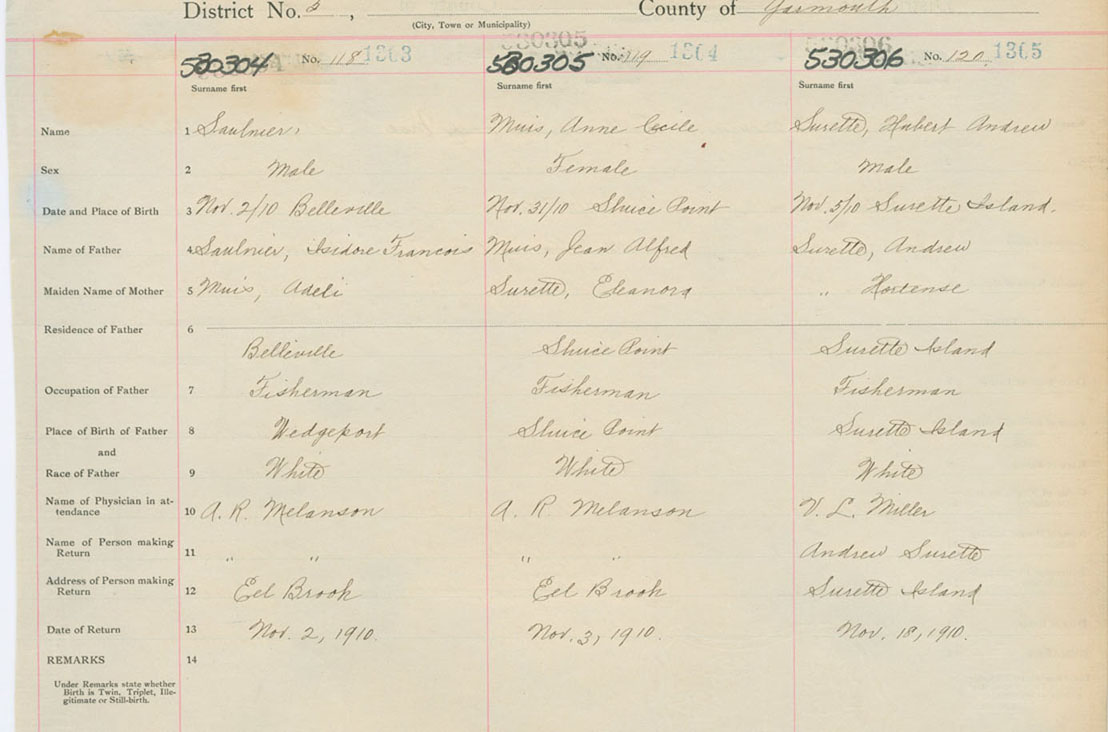 District No. 3, County of Yarmouth
(City, Town or Municipality)
530304 No. 118 1303 530305 530305 No. 119 1304 530306 530306 No. 120 1305
Surname first Surname first Surname first
Name 1 Saulnier, Muis, Anne Cecile Surette, Hubert Andrew
Sex 2 Male Female Male
Date and Place of Birth 3 Nov. 2/10 Belleville Nov. 31/10 Sluice Point Nov. 5/10 Surette Island.
Name of Father 4 Saulnier, Isidore Francois Muis, Jean Alfred Surette, Andrew
Maiden Name of Mother 5 Muis, Adeli Surette, Eleanora " Hortense
Residence of Father 6
Belleville Sluice Point Surette Island
Occupation of Father 7 Fisherman Fisherman Fisherman
Place of Birth of Father 8 Wedgeport Sluice Point Surette Island
and
Race of Father 9 White White White
Name of Physician in at-
tendance 10 A. R. Melanson A. R. Melanson V. L. Miller
Name of Person making
Return 11 " " " " Andrew Surette
Address of Person making
Return 12 Eel Brook Eel Brook Surette Island
Date of Return 13 Nov. 2, 1910. Nov. 3, 1910. Nov. 18, 1910.
REMARKS 14
Under Remarks state whether
Birth is Twin, Triplet, Ille-
gitimate or Still-birth.